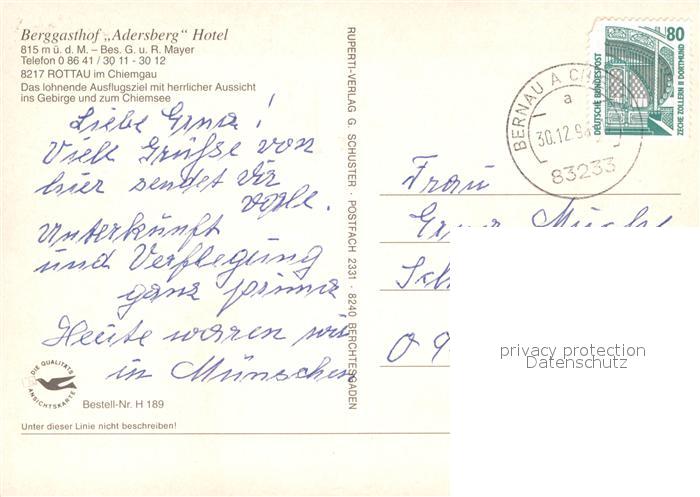 Berggasthof „Adersberg“ Hotel
815 m ü. d. M. – Bes. G. u. R. Mayer
Telefon 0 86 41 / 30 11 - 30 12
8217 ROTTAU im Chiemgau
Das lohnende Ausflugsziel mit herrlicher Aussicht
ins Gebirge und zum Chiemsee
Liebe Erna!
Viele Grüße von
hier sendet Dir
Unterkunft
und Verflegung
ganz prima
Heute waren wir
in München
DIE QUALITÄTS
ANSICHTSKARTE
Bestell-Nr. H 189
Unter dieser Linie nicht beschreiben!
RUPERTI-VERLAG G. SCHUSTER · POSTFACH 2331 · 8240 BERCHTESGADEN
BERNAU A CH
a
30.12.9
83233
DEUTSCHE BUNDESPOST
80
ZECHE ZOLLERN II DORTMUND
Frau
Sch
0 9
privacy protection
Datenschutz